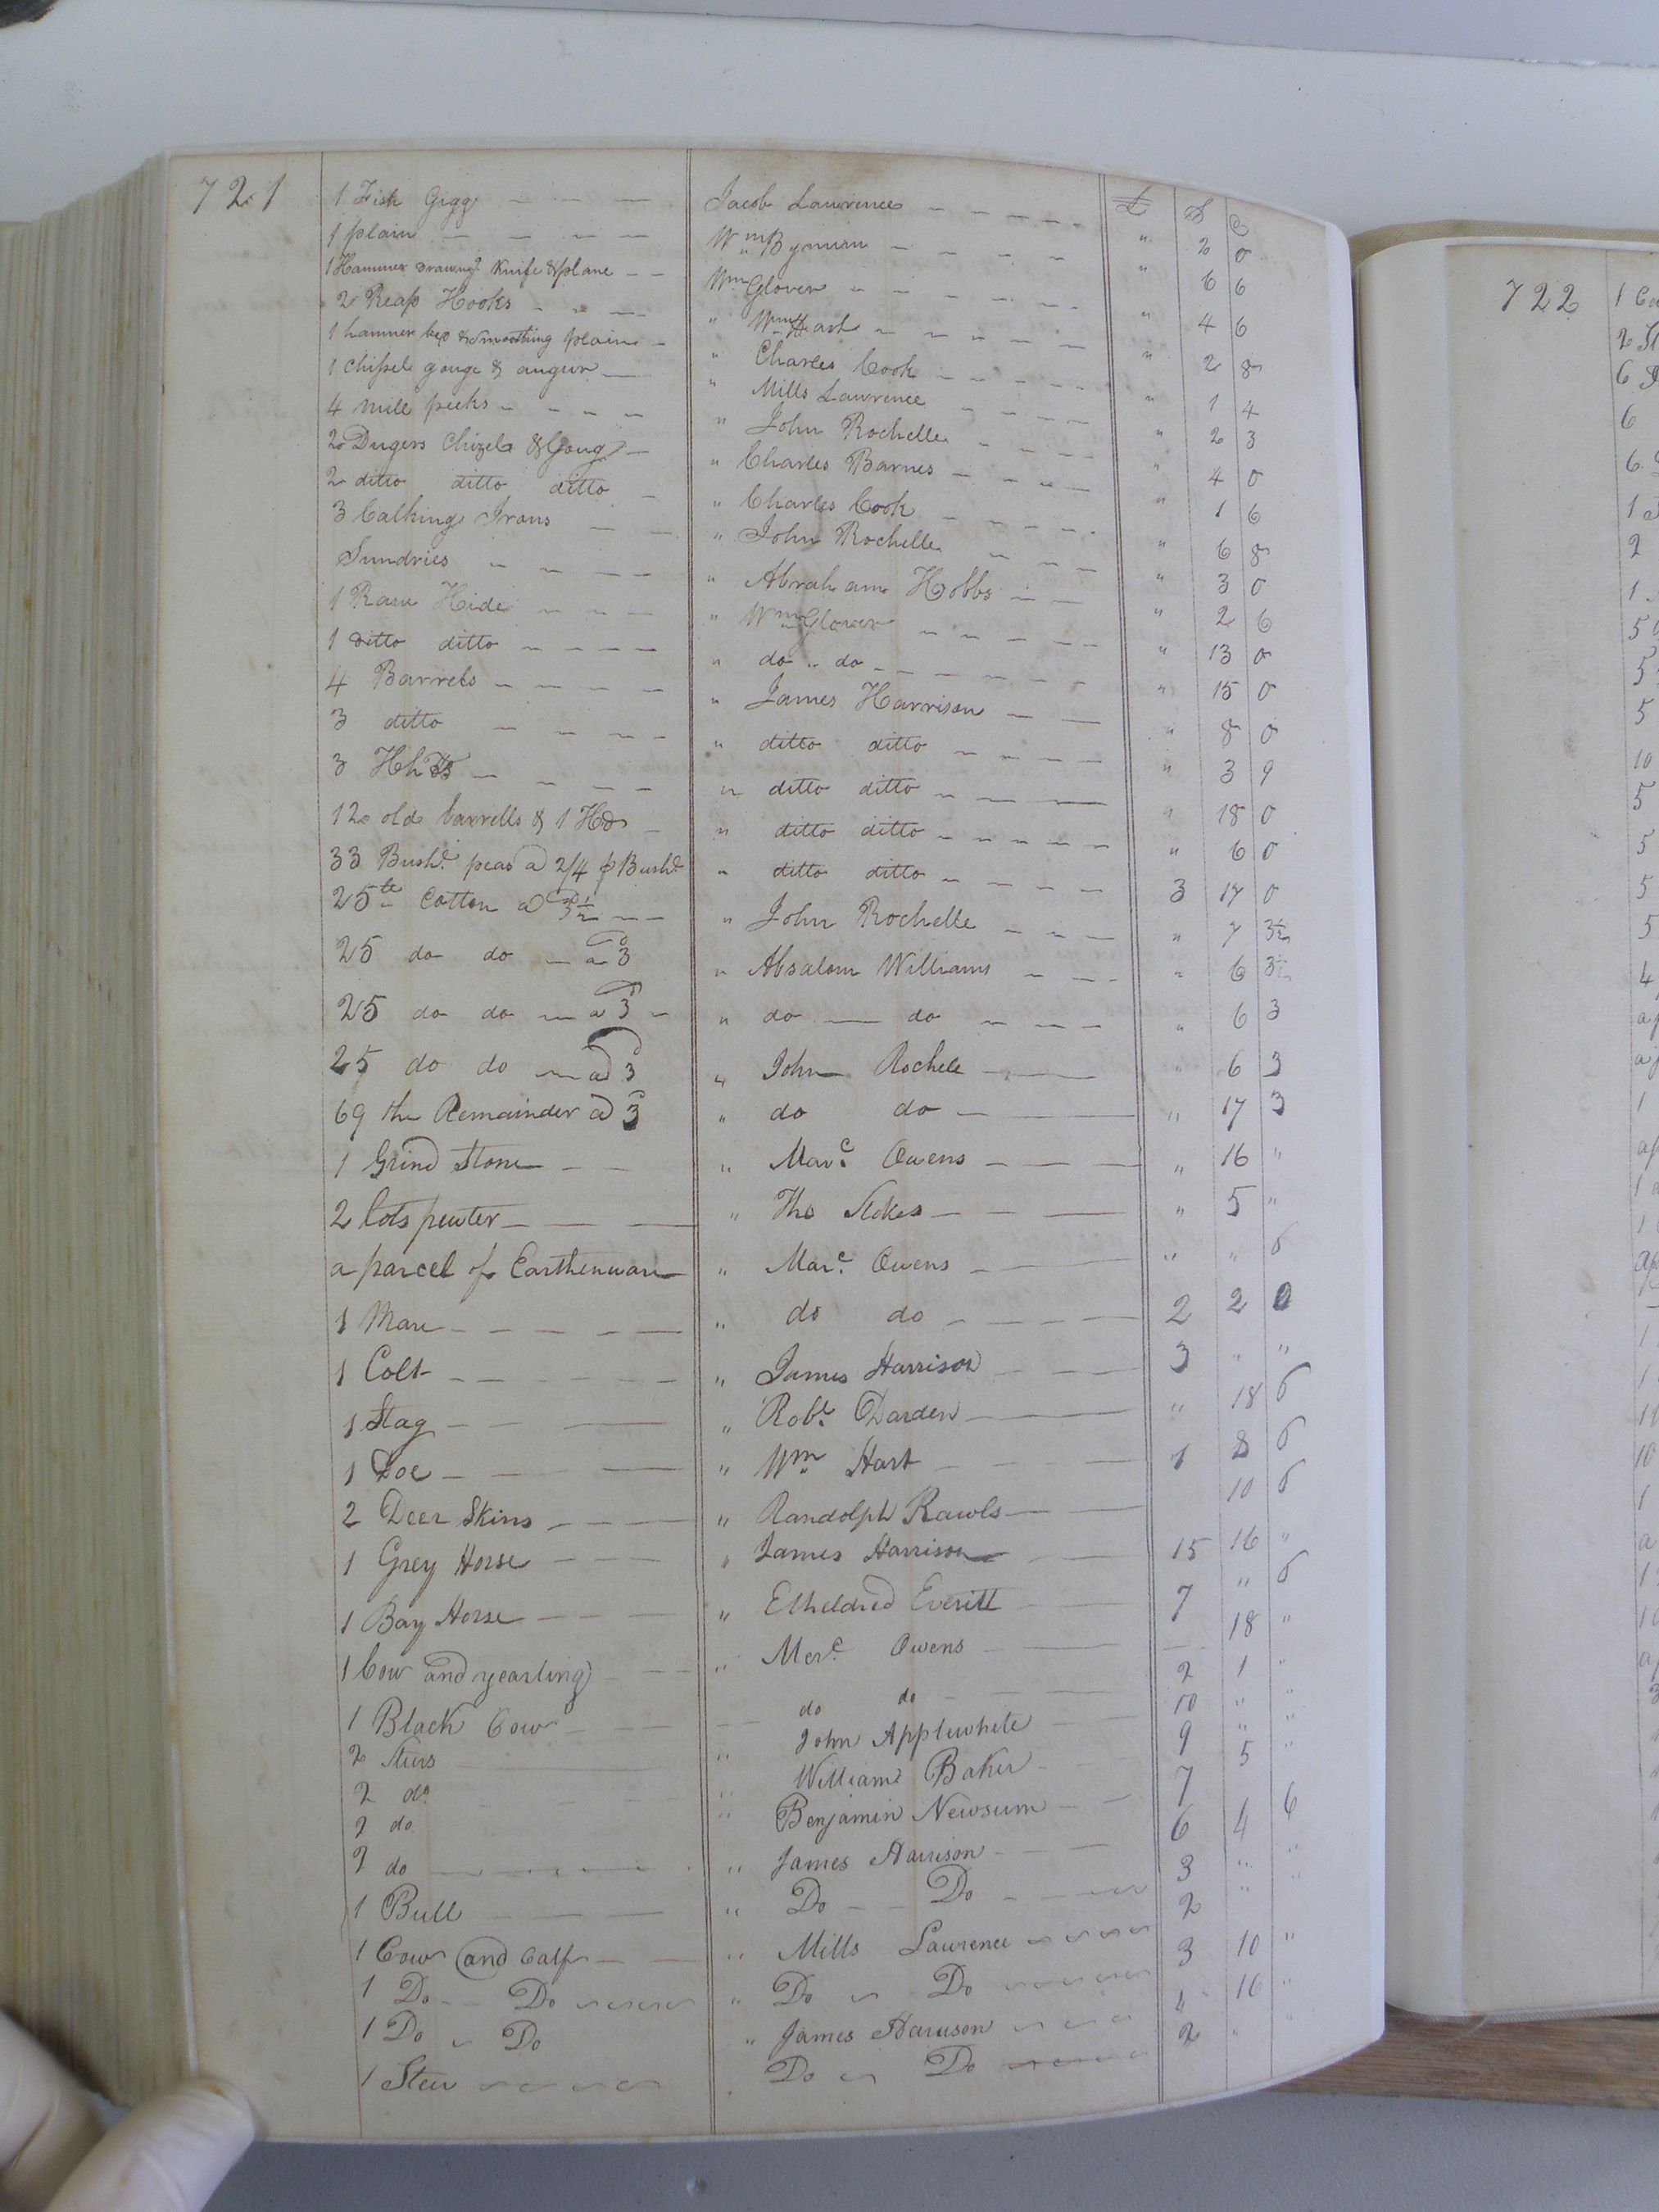 721
£ S D
1 Fish Gigg Jacob Lawrence " 2 0
1 plain Wm Bynum " 6 6
1 Hammer Drawing Knife & plane Wm Glover " 4 6
2 Reap Hooks " Wm Hart " 2 8
1 hammer & Smoothing plain " Charles Cook " 1 4
1 Chisel gouge & augur " Mills Lawrence " 2 3
4 mill pecks " John Rochelle " 4 0
2 Chizels & Goug " Charles Barnes " 1 6
2 ditto ditto ditto " Charles Cook " 6 8
3 Calking Irons " John Rochelle " 3 0
Sundries " Abraham Hobbs " 2 6
1 Raw Hide " Wm Glover " 13 0
1 ditto ditto " do " do " 15 0
4 Barrels " James Harrison " 8 0
3 ditto " ditto ditto " 3 9
3 Hhds " ditto ditto " 18 0
12 old barrells & 1 Hhd " ditto ditto " 6 0
33 Bushl peas a 2/4 p Bushl " ditto ditto 3 17 0
25 lb Cotton a 3½ " John Rochelle " 7 3½
25 do do a 3 " Absalom Williams " 6 3
25 do do a 3 " do do " 6 3
25 do do a 3 " John Rochele " 6 3
69 the Remainder a 3 " do do " 17 3
1 Grind Stone " Marc. Owens " 16 "
2 lots pewter " Tho Stokes " 5 "
a parcel of Earthenware " Marc. Owens " " 6
1 Mare " do do 2 2 0
1 Colt " James Harrison 3 " "
1 Stag " Robt. Darden " 18 6
1 Doe " Wm Hart 1 8 6
2 Deer Skins " Randolph Rawls 10 6
1 Grey Horse " James Harrison 15 16 "
1 Bay Horse " Etheldred Everitt 7 " 6
1 Cow and yearling " Merc. Owens 18 "
1 Black Cow do do 2 1 "
2 Steers " John Applewhite 10 " "
2 do " William Baker 9 " "
2 do " Benjamin Newsum 7 5 "
2 do " James Harrison 6 4 6
1 Bull " Do Do 3 " "
1 Cow and Calf " Mills Lawrence 2 "
1 Do Do " Do Do 3 10 "
1 Do Do " James Harrison 16 "
1 Steer Do Do 2 " "
722